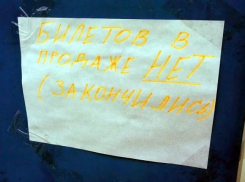 БИЛЕТОВ В
ПРОДАЖЕ НЕТ
(ЗАКОНЧИЛИСЬ)